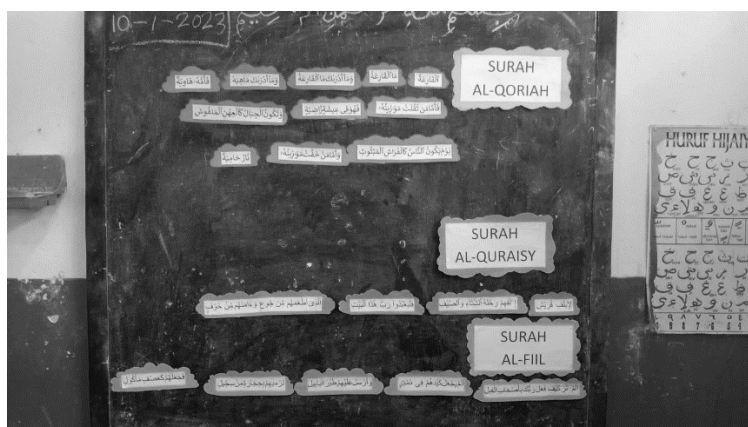 10-1-2023
بسم الله الرحمن الرحيم
SURAH
AL-QORIAH
اَلْقَارِعَةُ
مَا الْقَارِعَةُ
وَمَا أَدْرَىكَ مَا الْقَارِعَةُ
وَمَا أَدْرَىكَ مَاهِيَةْ
فَأُمُّهُ هَاوِيَةٌ
فَأَمَّا مَنْ ثَقُلَتْ مَوَازِينُهُ
فَهُوَ فِي عِيشَةٍ رَاضِيَةٍ
وَتَكُونُ الْجِبَالُ كَالْعِهْنِ الْمَنْفُوشِ
يَوْمَ يَكُونُ النَّاسُ كَالْفَرَاشِ الْمَبْثُوثِ
وَأَمَّا مَنْ خَفَّتْ مَوَازِينُهُ
نَارٌ حَامِيَةٌ
SURAH
AL-QURAISY
لِإِيلَافِ قُرَيْشٍ
إِيلَافِهِمْ رِحْلَةَ الشِّتَاءِ وَالصَّيْفِ
فَلْيَعْبُدُوا رَبَّ هَذَا الْبَيْتِ
الَّذِي أَطْعَمَهُمْ مِنْ جُوعٍ وَءَامَنَهُمْ مِنْ خَوْفٍ
SURAH
AL-FIIL
أَلَمْ تَرَ كَيْفَ فَعَلَ رَبُّكَ بِأَصْحَابِ الْفِيلِ
أَلَمْ يَجْعَلْ كَيْدَهُمْ فِي تَضْلِيلٍ
وَأَرْسَلَ عَلَيْهِمْ طَيْرًا أَبَابِيلَ
تَرْمِيهِمْ بِحِجَارَةٍ مِنْ سِجِّيلٍ
فَجَعَلَهُمْ كَعَصْفٍ مَأْكُولٍ
HURUF HIJAI